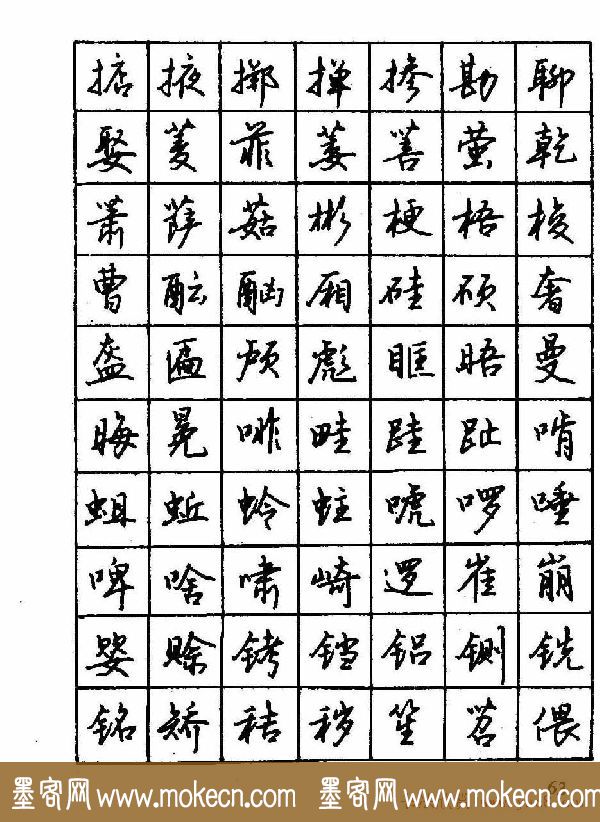 掂掖掷掸掺勘聊
娶菱菲萎菩萤乾
萧萨菇彬梗梧梭
曹酝酗厢硅硕奢
盔匾颅彪眶晤曼
晦冕啡畦跬趾啃
蛆蚯蛉蛀唬啰唾
啤啥啸崎逻崔崩
婴赊铐铛铝铡铣
铭矫秸秽笙笤偎
63
墨客网 www.mokecn.com 墨客网 www.mokecn.com